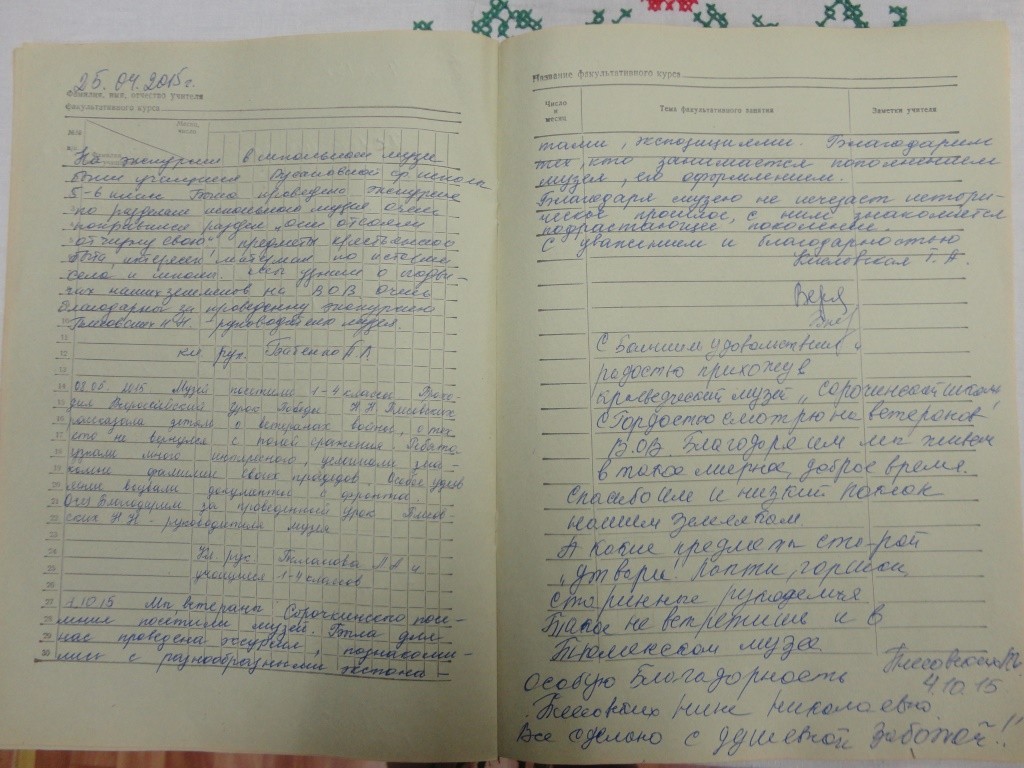 25.04.2015г.
Фамилия, имя, отчество учителя
факультативного курса
Месяц, число
На экскурсии в школьном музее
были учащиеся ср. школы
5-6 класс. Была проведена экскурсия
по разделам школьного музея Очень
понравился раздел „Они отстояли
отчизну свою" предметы крестьянского
быта, интересен материал по истории
села и школы. Мы узнали о подви-
гах наших земляков на ВОВ Очень
благодарны за проведенную экскурсию
Н.Н. - руководителю музея.
11
12 кл рук.
13
14 08.05.2015 Музей посетили 1-4 классы. Прохо-
15 дил Всероссийский Урок Победы Н.Н.
16 рассказала детям о ветеранах войны, о тех
17 кто не вернулся с полей сражения. Ребята
18 узнали много интересного, услышали зна-
19 комые фамилии своих прадедов. Особое удив
20 ление вызвали документы с фронта.
21 Благодарим за проведенный урок
22 ских Н.Н - руководителя музея
23
24 Кл. рук
25 учащиеся 1-4 классов
26
27 10.15 Мы, ветераны Сорочкинского посе-
28 ления посетили музей. Была для
29 нас проведена экскурсия, познакоми-
30 лись с разнообразными экспона-
Название факультативного курса
Число и месяц
Тема факультативного занятия
Заметки учителя
тами, экспозициями. Благодарим
тех, кто занимается пополнением
музея, его оформлением.
Благодаря музею не исчезает истори-
ческое прошлое, с ним знакомится
подрастающее поколение.
С уважением и благодарностью
С Большим удовольствием и
радостью прихожу в
краеведческий музей „Сорочинской школы
С Гордостью смотрю на ветеранов
В.О.В. Благодоря им мы живем
в такое мирное, доброе время.
Спасибо им и низкий поклон
нашим Землякам
А какие предметы старой
утвари. Лапти, горшки,
старинные рукоделия
Такое не встретишь и в
Тюменском музее
4.10.15
Особую Благодарность
Нине Николаевне.
Все сделано с душевной Заботой!!